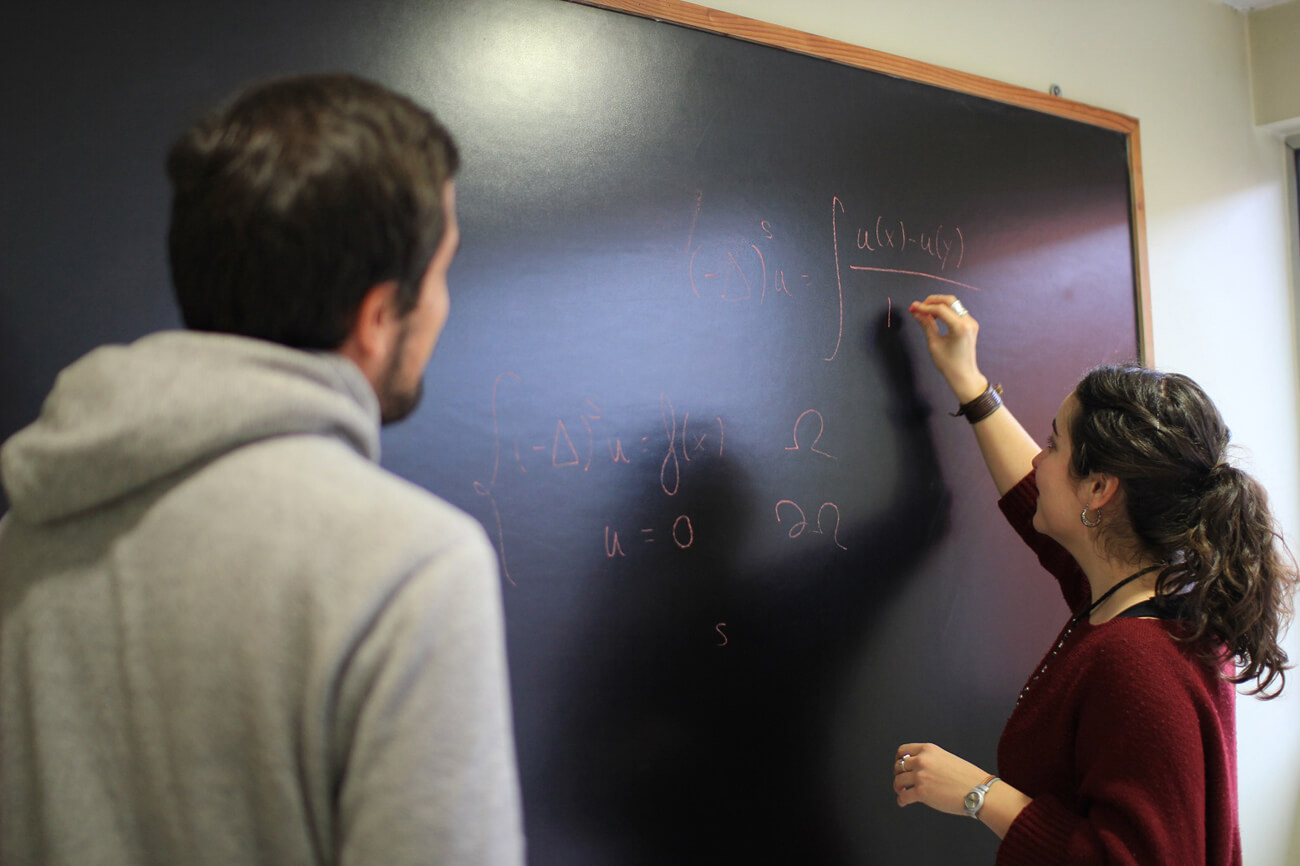 (-Δ)^s u = ∫ u(x)-u(y) / |
{ (-Δ)^s u = f(x) Ω
u = 0 ∂Ω
s